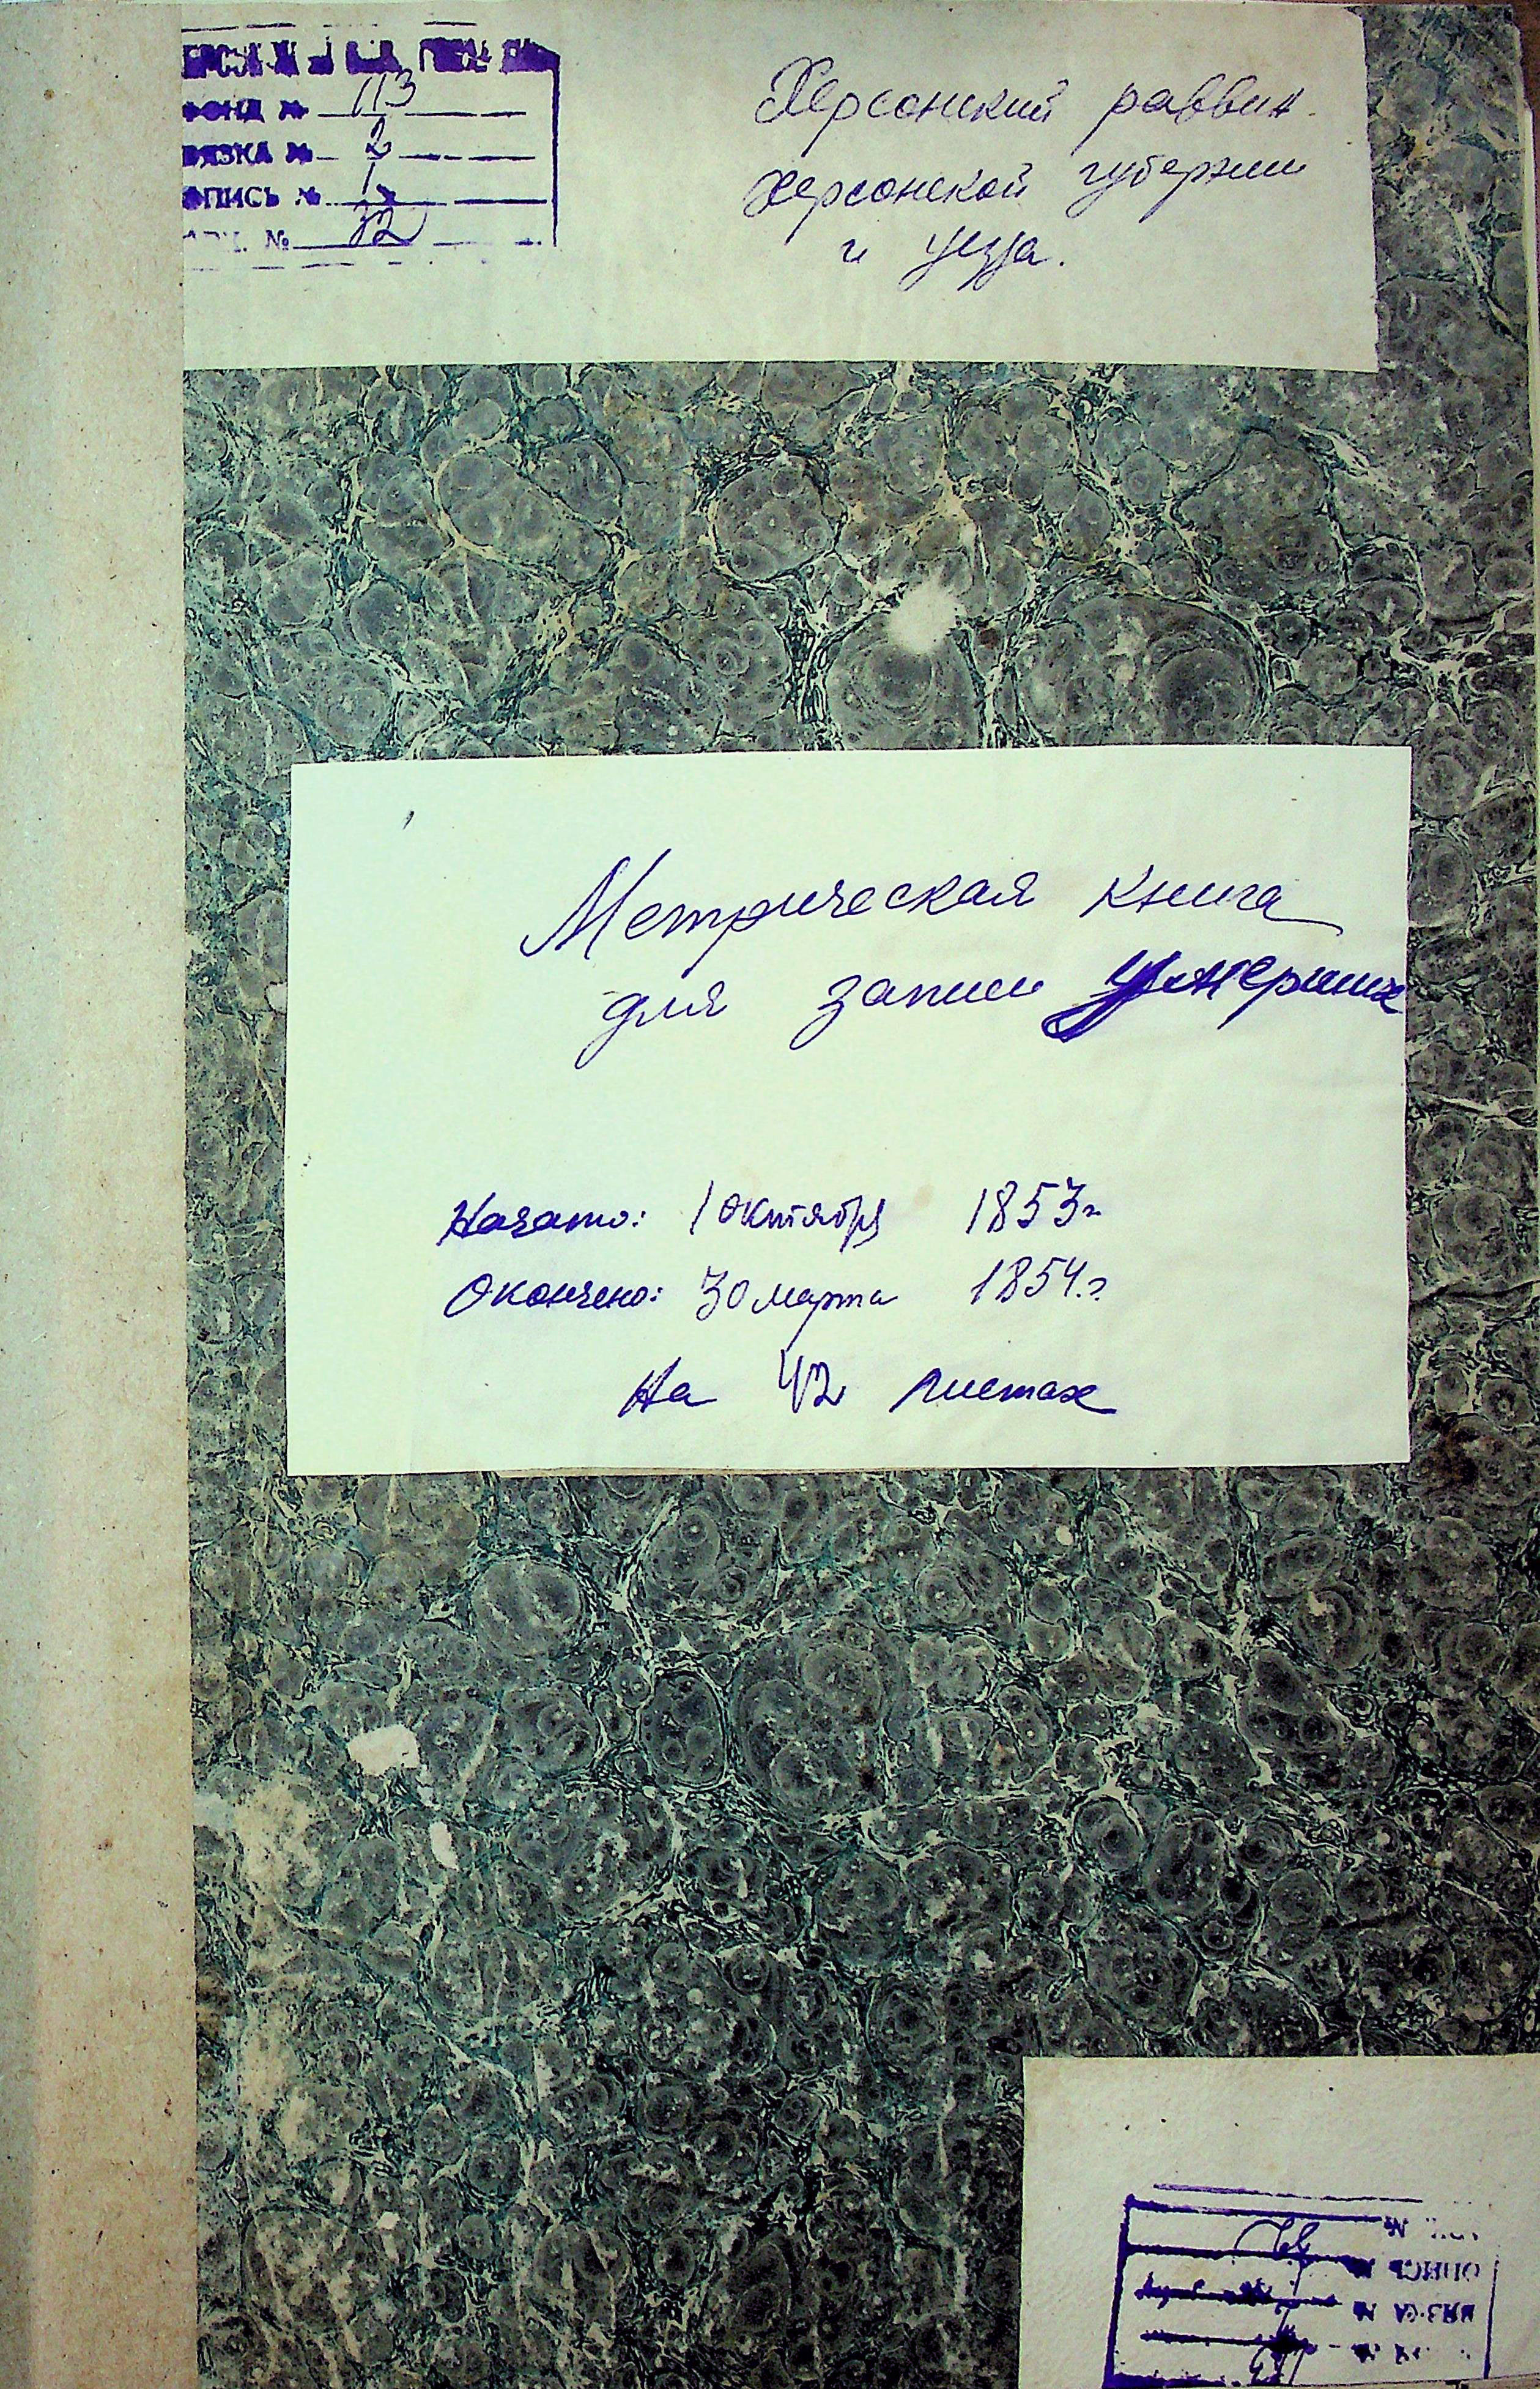 ФОНД № 113
ВЯЗКА № 2
ОПИСЬ № 1
№ 32
Херсонский раввин
Херсонской губернии
и уезда.
Метрическая книга
для записи умерших
Начато: 1 октября 1853 г
Окончено: 30 марта 1854 г.
На 42 листах
№
ОПИСЬ №
ВЯЗКА №
113